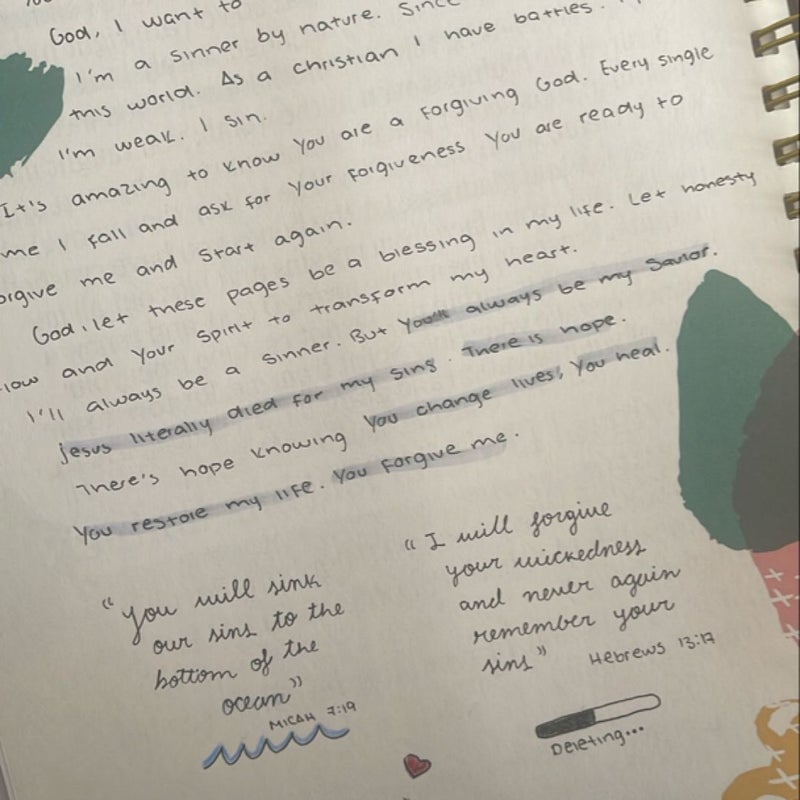 God, I want to
I'm a sinner by nature. Since
this world. As a christian I have battles.
I'm weak. I sin.
It's amazing to know you are a forgiving God. Every single
me I fall and ask for your forgiveness you are ready to
orgive me and start again.
God, let these pages be a blessing in my life. Let honesty
low and your Spirit to transform my heart.
I'll always be a sinner. But You'll always be my Savior.
Jesus literally died for my sins. There is hope.
There's hope knowing You change lives, You heal.
You restore my life. You forgive me.
"you will sink
our sins to the
bottom of the
ocean"
MICAH 7:19
"I will forgive
your wickedness
and never again
remember your
sins" Hebrews 13:17
Deleting...